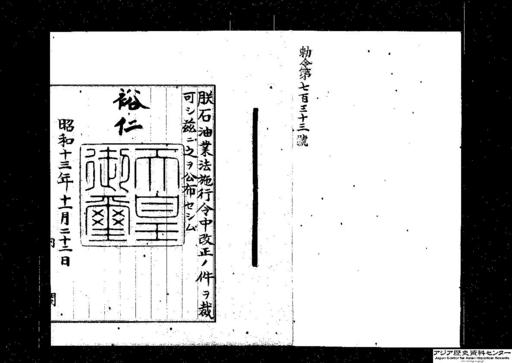 勅令第七百三十三號
朕石油業法施行令中改正ノ件ヲ裁
可シ茲ニ之ヲ公布セシム
裕仁
天皇
御璽
昭和十三年十一月二十二日
内 閣
アジア歴史資料センター
Japan Center for Asian Historical Records